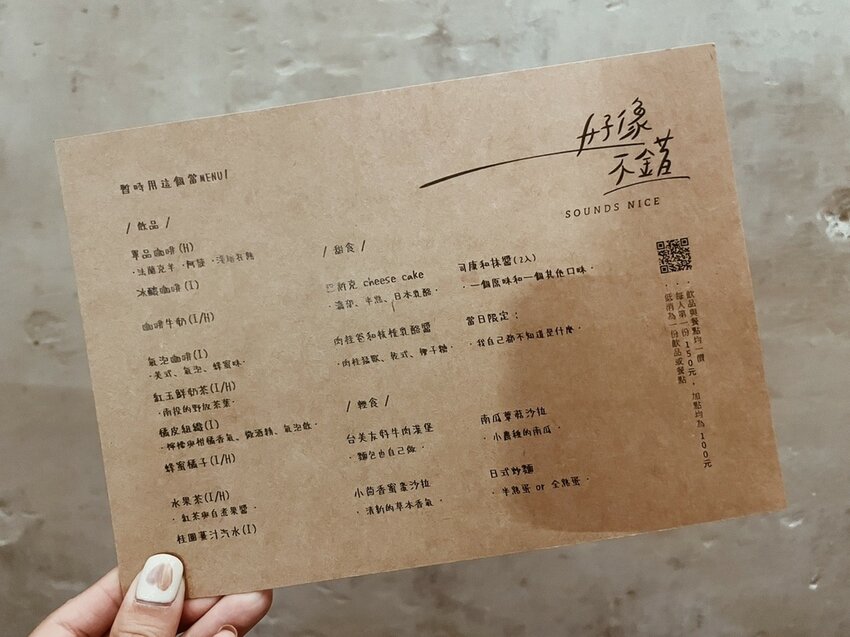 好像
不錯
SOUNDS NICE
暫時用這個當MENU!
/ 飲品 /
單品咖啡(H)
·法蘭克羊·阿薩·淺焙有熱
冰釀咖啡(I)
咖啡牛奶(I/H)
氣泡咖啡(I)
·美式、氣泡、蜂蜜味·
紅玉鮮奶茶(I/H)
·南投的野放茶葉·
橘皮組織(I)
·檸檬與柑橘香氣、微酒精、氣泡飲·
蜂蜜橘子(I/H)
水果茶(I/H)
·紅茶與自煮果醬
桂圓薑汁汽水(I)
/ 甜食 /
巴斯克 cheese cake
·濕潤、半熟、日本乳酪·
肉桂卷和核桃乳酪醬
·肉桂猛厭、乾式、椰子糖·
司康和抹醬(2入)
·一個原味和一個其他口味·
當日限定:
·我自己都不知道是什麼·
/ 輕食 /
台美友好牛肉漢堡
·麵包也自己做·
小茴香蜜棗沙拉
·清新的草本香氣·
南瓜蘑菇沙拉
·小農種的南瓜·
日式炒麵
·半熟蛋 or 全熟蛋·
·飲品與餐點均一價
·每人第一份150元,加點均為100元
·低消為一份飲品或餐點